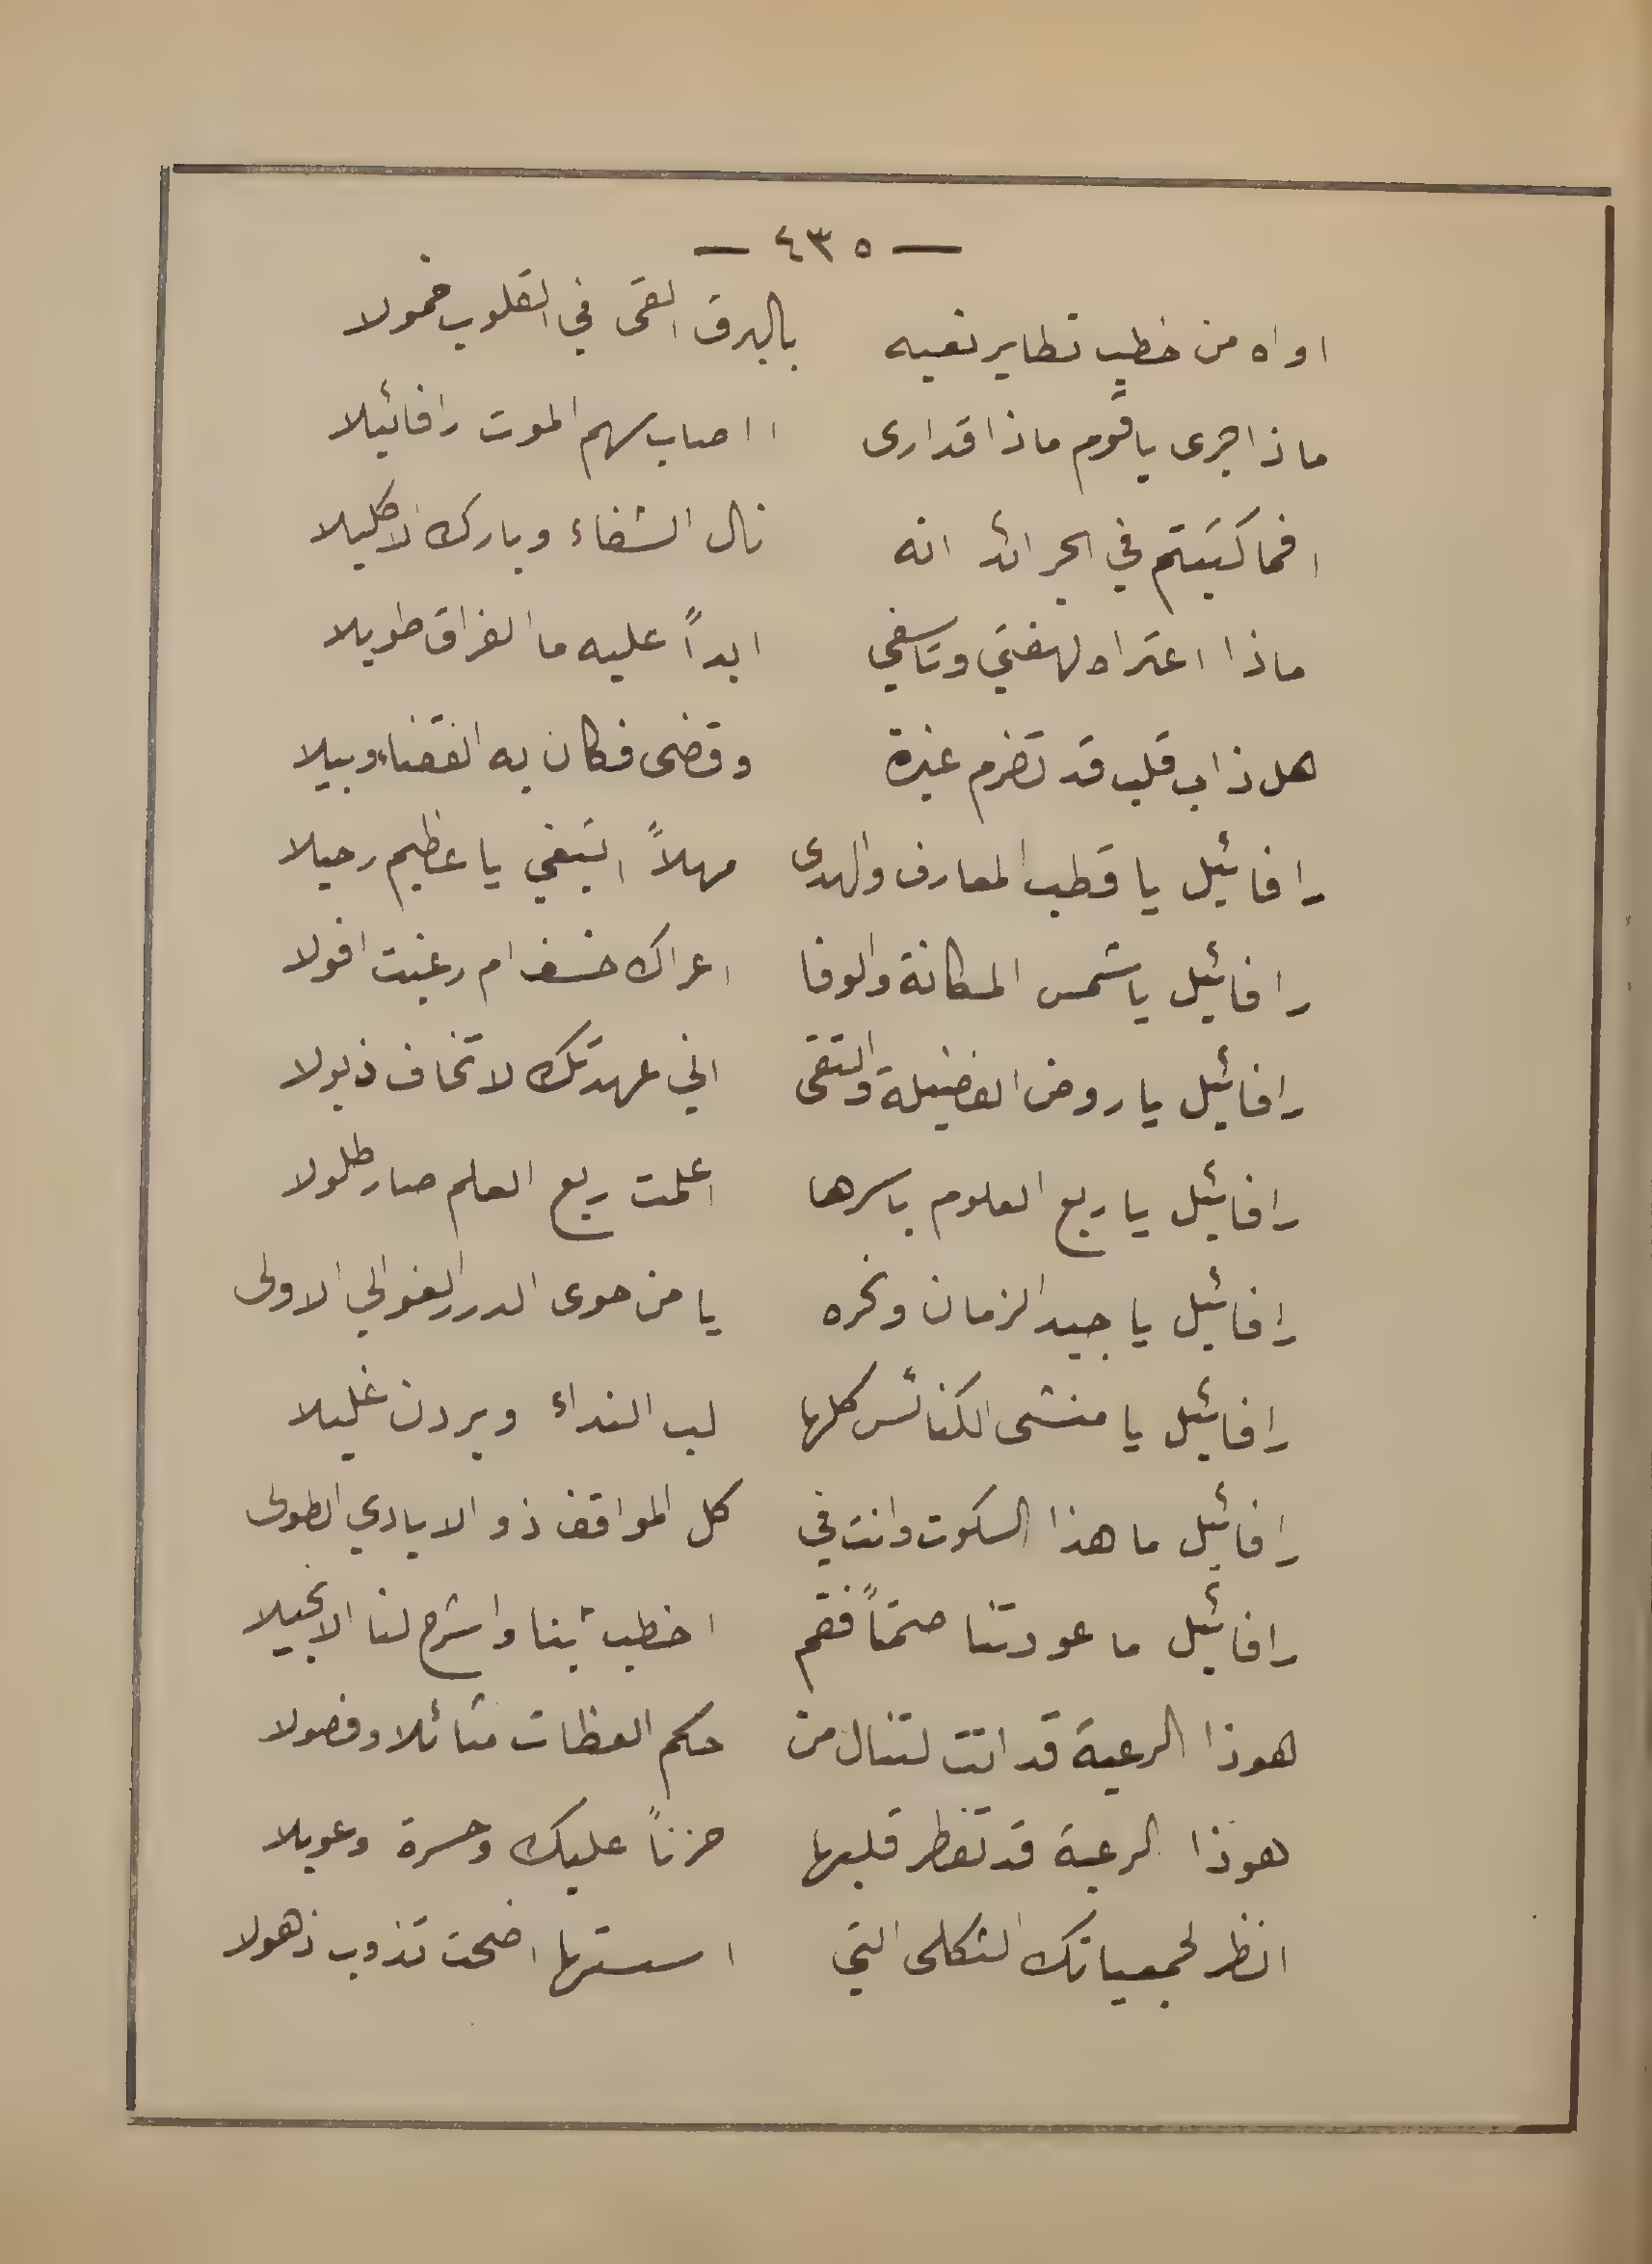 — ٤٣٥ —
اواه من خطبٍ تطاير نعيه بالبرق القى في القلوب خمولا
ماذا جرى يا قوم ماذا قد ارى ااصاب سهم الموت رافائيلا
افما كتبتم في الجرائد انه نال الشفاء وبارك الاكليلا
ماذا اعتراه لهفتي وتاسفي ابداً عليه ما الفراق طويلا
هل ذاب قلب قد تضرم غيرة وقضى فكان به القضاء وبيلا
رافائيل يا قطب المعارف والهدى مهلاً اتبتغي يا عظيم رحيلا
رافائيل يا شمس المكانة والوفا اعراك خسف ام رغبت افولا
رافائيل يا روض الفضيلة والتقى اني عهدتك لا تخاف ذبولا
رافائيل يا ربع العلوم باسرها اعلمت ربع العلم صار طلولا
رافائيل يا جيد الزمان ونحره يا من حوى الدرر الغوالي الاولى
رافائيل يا منشى الكنائس كلها لب النداء وبردن غليلا
رافائيل ما هذا السكوت وانت في كل المواقف ذو الايادي الطولى
رافائيل ما عودتنا صمتاً فقم اخطب بنا واشرح لنا الانجيلا
هوذا الرعية قد اتت لتنال من حكم العظات مسائلا وفصولا
هوذا الرعية قد تفطر قلبها حزناً عليك وحسرة وعويلا
انظر لجمعياتك الثكلى التي اسستها اضحت تذوب ذهولا